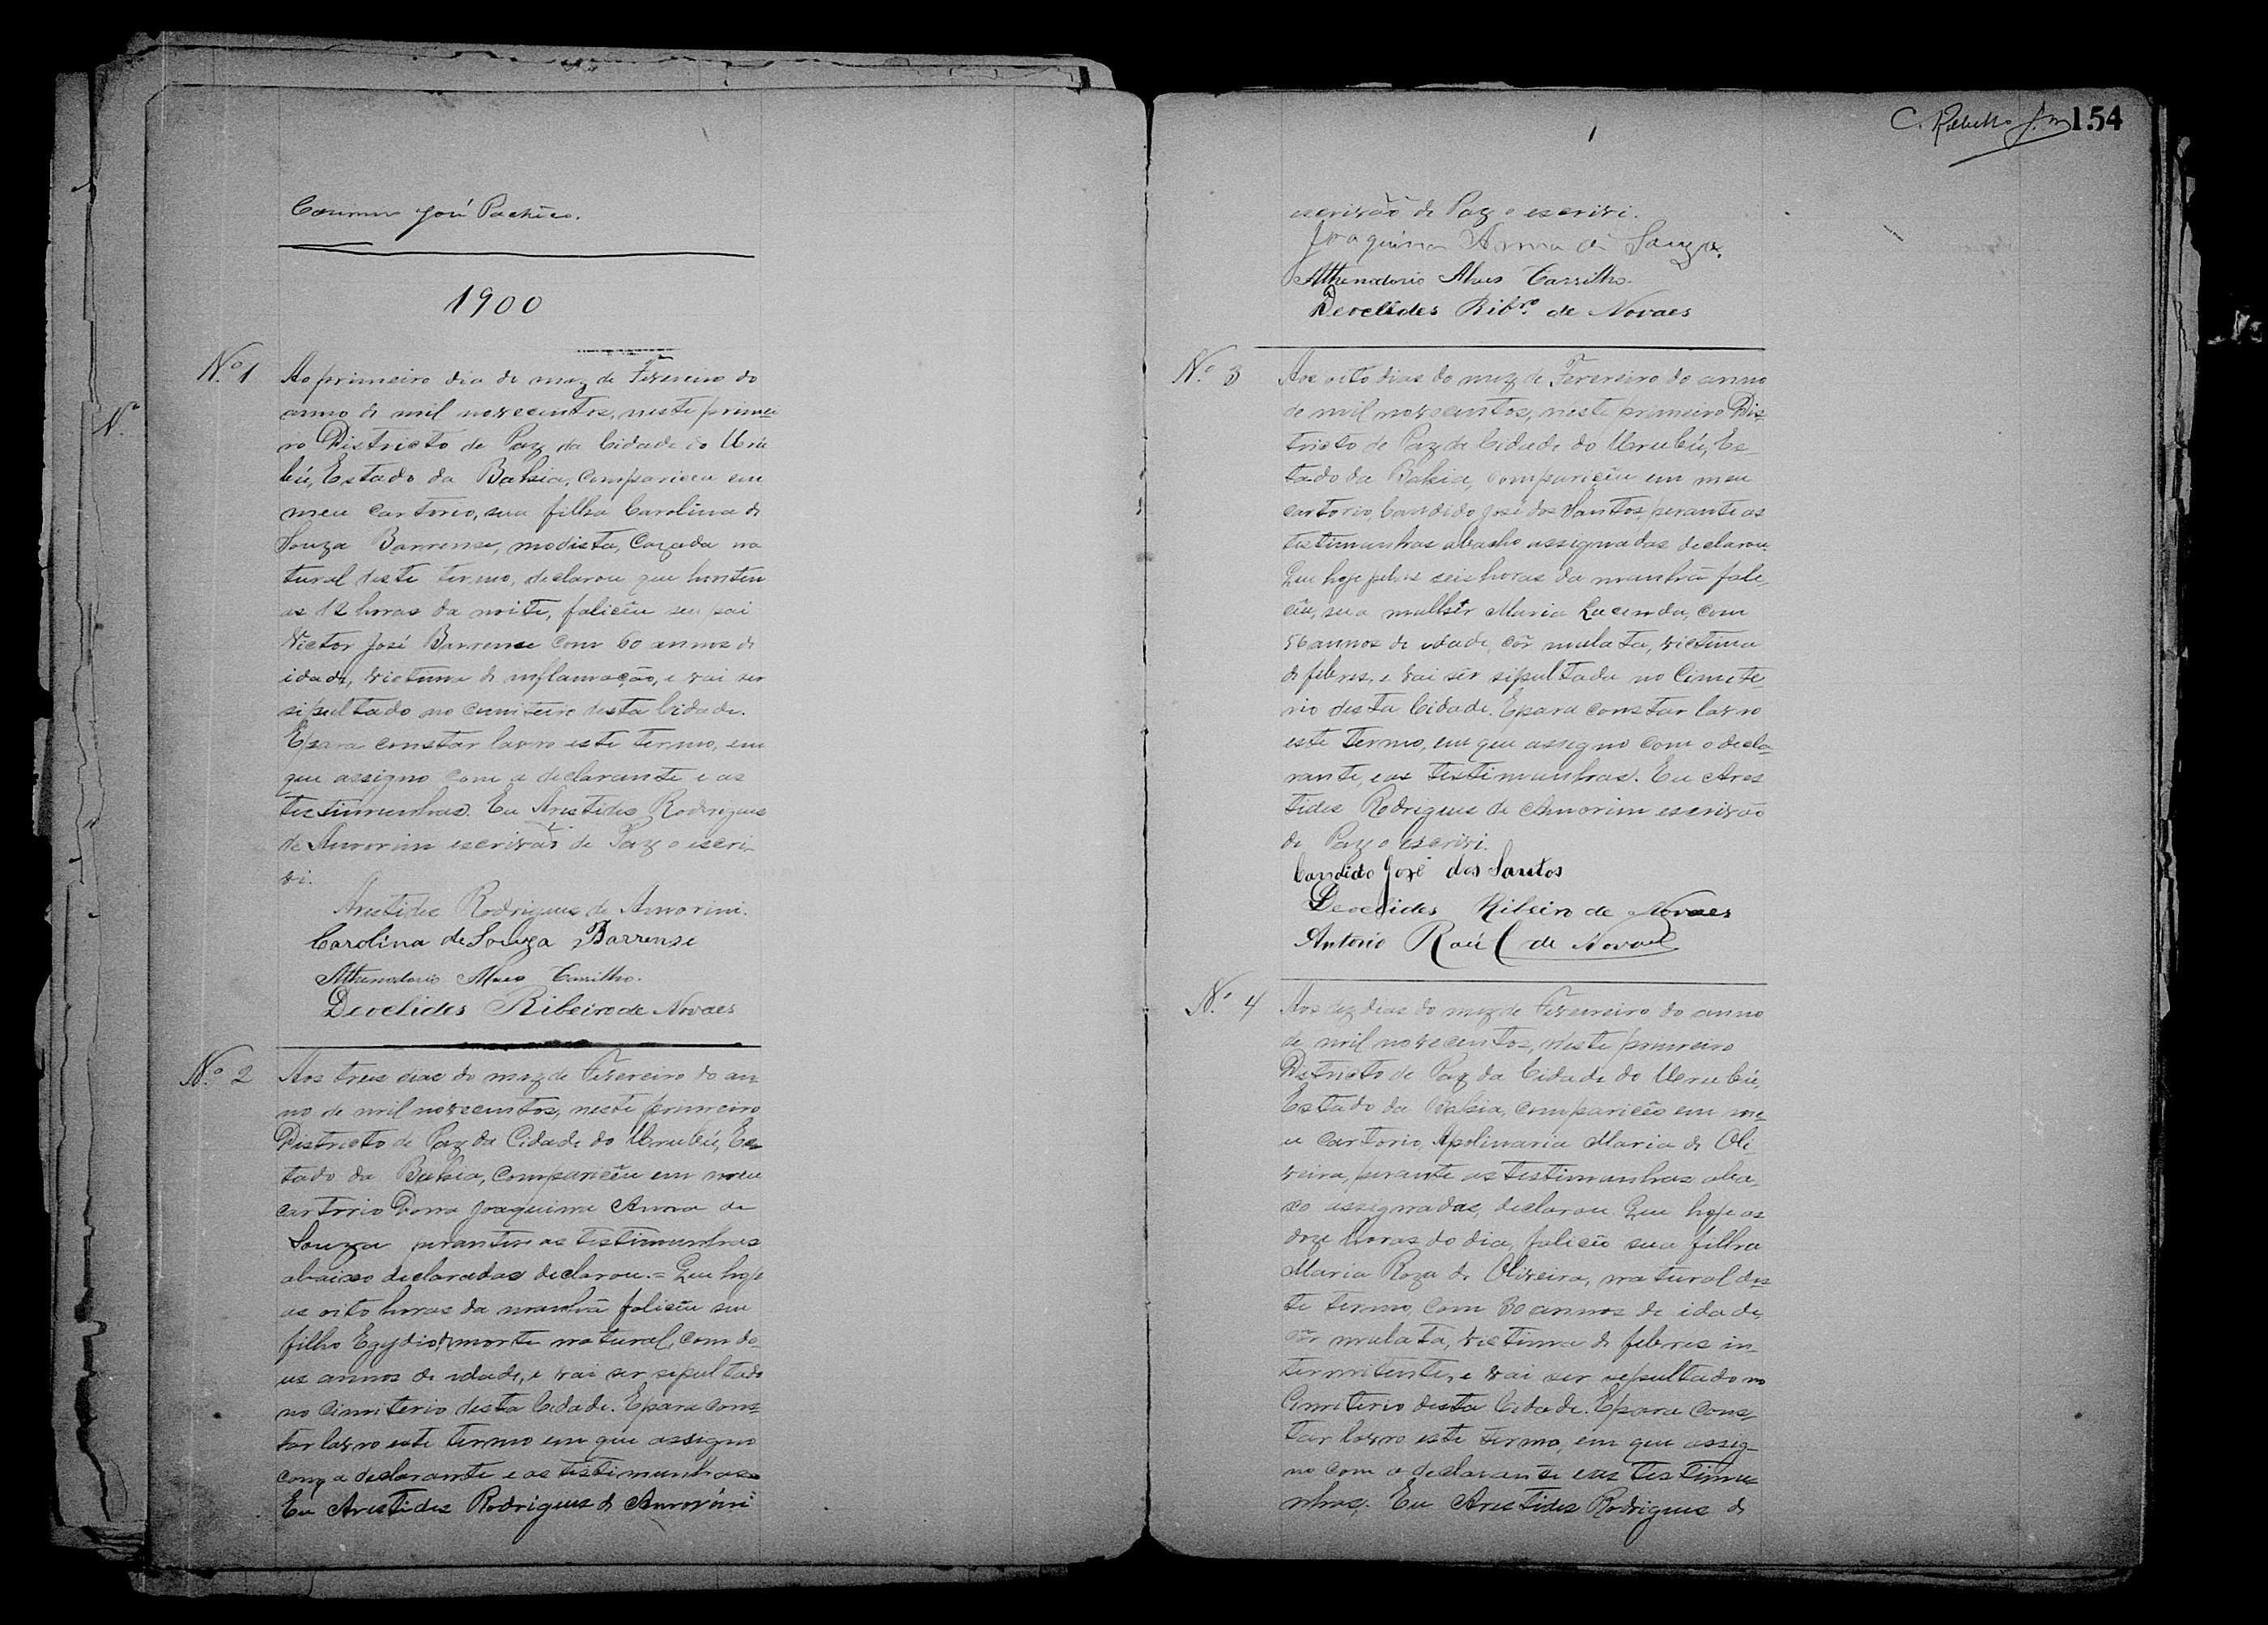 José Pacheco.
1900
N.º 1
Ao primeiro dia do mez de Fevereiro do
anno de mil novecentos, neste primei
ro Districto de Paz da Cidade do Uru
bú, Estado da Bahia, compariceu em
meu cartorio, sua filha Carolina de
Souza Barrense, modista, Cazada na
tural deste termo, declarou que hontem
as 12 horas da noite, faliceu seu pai
Victor José Barrense com 60 annos de
idade, victima de inflamação, e vai ser
sipultado no cimiterio desta Cidade.
E para constar lavro este termo, em
que assigno com a declarante e as
testimunhas. Eu Aristides Rodrigues
de Amorim escrivão de Paz o escri-
vi.
Aristides Rodrigues de Amorim.
Carolina de Souza Barrense
Athenodorio Alves Carrilho.
Deoclides Ribeiro de Novaes
N.º 2
Aos treis dias do mez de Fevereiro do an
no de mil novecentos, neste primeiro
Districto de Paz da Cidade do Urubú, Es
tado da Bahia, comparicêu em meu
cartorio Dona Joaquina Anna de
Souza perante as testimunhas
abaixo declaradas declarou. = Que hoje
as oito horas da manhã falicêu seu
filho Egydio, de morte natural, com do-
us annos de idade, e vai ser sepultado
no Cimiterio desta Cidade. E para cons
tar lavro este termo em que assigno
com a declarante e as testimunhas
Eu Aristides Rodrigues de Amorim
C. Rabello 154
escrivão de Paz o escrivi.
Joaquina Anna de Souza.
Athenodorio Alves Carrilho.
Deoclides Ribr.º de Novaes
N.º 3
Aos oito dias do mez de Fevereiro do anno
de mil novecentos, neste primeiro Dis-
tricto de Paz da Cidade do Urubú, Es-
tado da Bahia, comparicêu em meu
cartorio, Candido José dos Santos, perante as
testimunhas abacho assignadas declarou.
Que hoje pelas seis horas da manhã fale-
cêu, sua mulher Maria Lucinda, com
56 annos de idade, côr mulata, victima
de febres, e vai sêr sipultada no Cimite-
rio desta Cidade. E para constar lavro
este termo, em que assigno com o decla-
rante, e as testimunhas. Eu Aris
tides Rodrigues de Amorim escrivão
de Paz o escrivi.
Candido José dos Santos
Deoclides Ribeiro de Novaes
Antonio Raúl de Novaes
N.º 4
Aos dez dias do mez de Fevereiro do anno
de mil novecentos, neste primeiro
Districto de Paz da Cidade do Urubú,
Estado da Bahia, comparicêo em me-
u cartorio, Apolinaria Maria de Oli-
veira, perante as testimunhas aba-
xo assignadas, declarou. Que hoje as
doze horas do dia, falicêo sua filha
Maria Roza de Oliveira, natural des-
te termo, com 30 annos de idade,
côr mulata, victima de febres in-
termitente, e vai ser sepultado no
Cimiterio desta Cidade. E para cons-
tar lavro este termo, em que assig-
no com a declarante e as testimu
nhas. Eu Aristides Rodrigues de